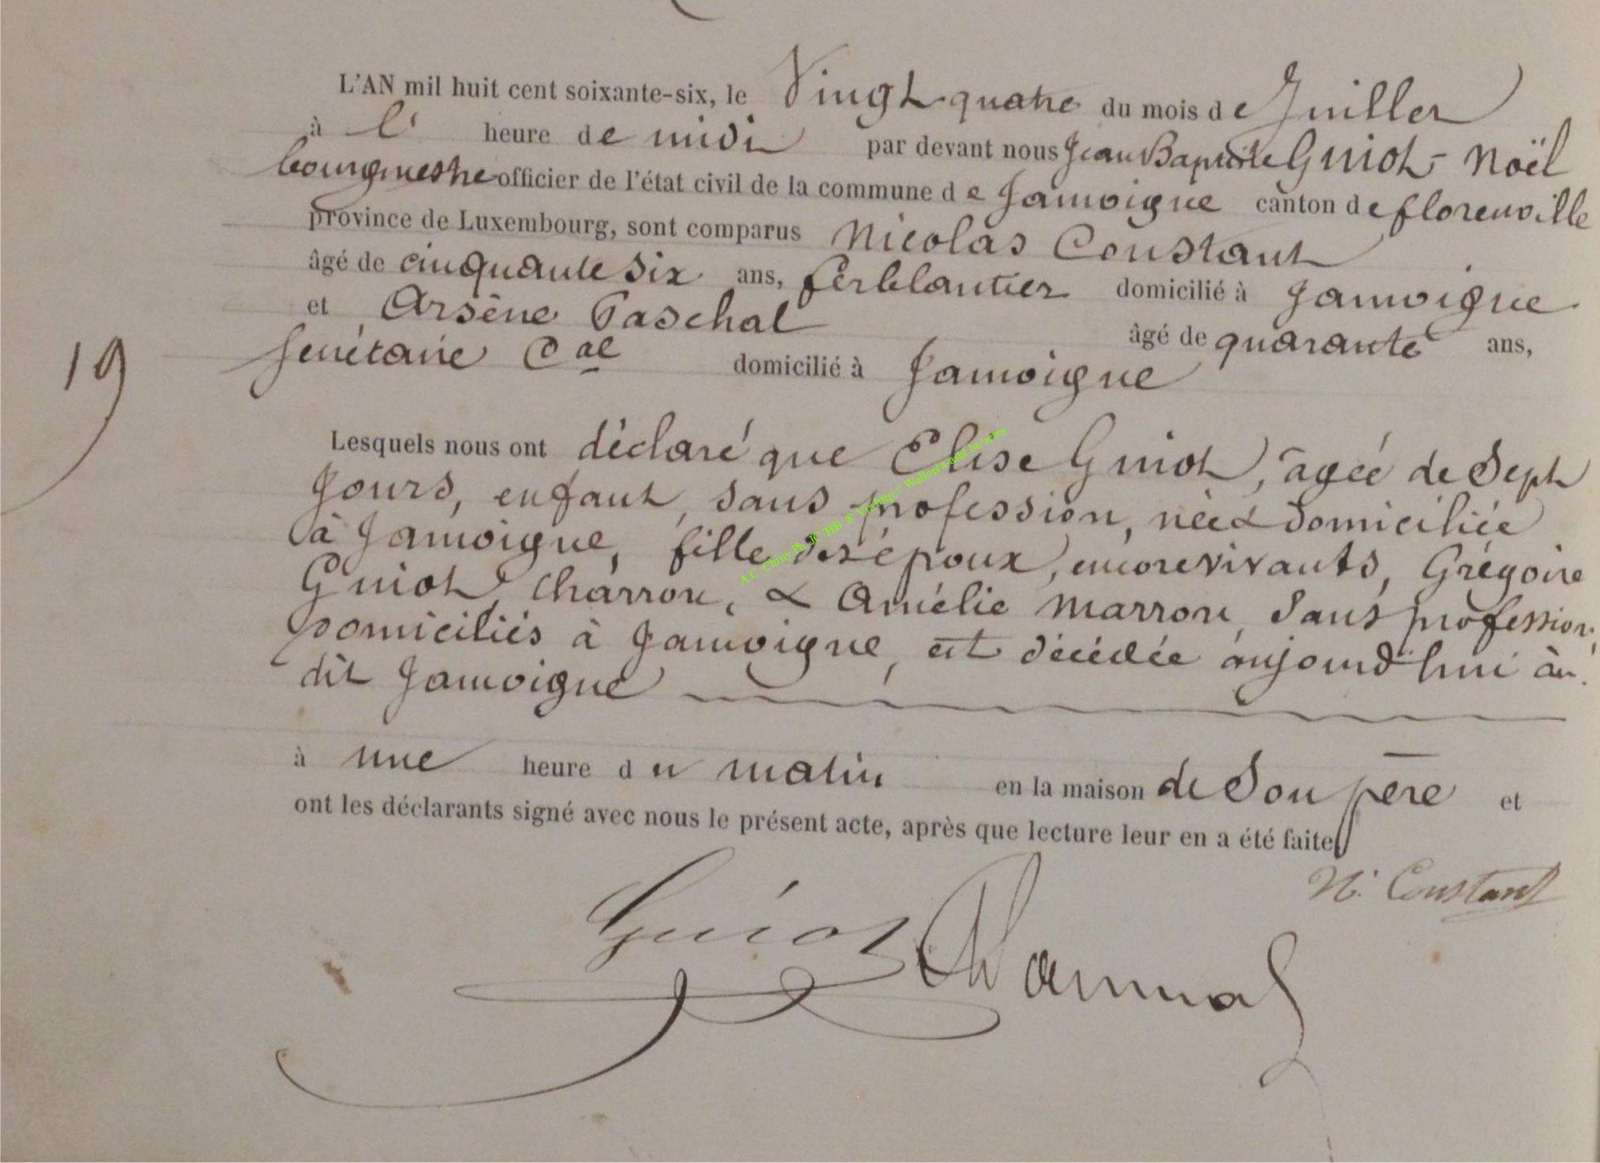 L'AN mil huit cent soixante-six, le Vingt quatre du mois de Juillet
à l' heure de midi par devant nous Jean Baptiste Guiot-Noël
bourgmestre officier de l'état civil de la commune de Jamoigne canton de florenville
province de Luxembourg, sont comparus Nicolas Constant
âgé de cinquante six ans, ferblantier domicilié à Jamoigne
et Arsène Paschal âgé de quarante ans,
Secrétaire Cal domicilié à Jamoigne
19
Lesquels nous ont déclaré que Elise Guiot, âgée de Sept
Jours, enfant, sans profession, née & domiciliée
à Jamoigne, fille des époux, encore vivants, Grégoire
Guiot, Charron, & Amélie Marron, Sans profession,
Domiciliés à Jamoigne, est décédée aujourd'hui au
dit Jamoigne
à une heure du matin en la maison de Son père et
ont les déclarants signé avec nous le présent acte, après que lecture leur en a été faite
N. Constant
Guiot